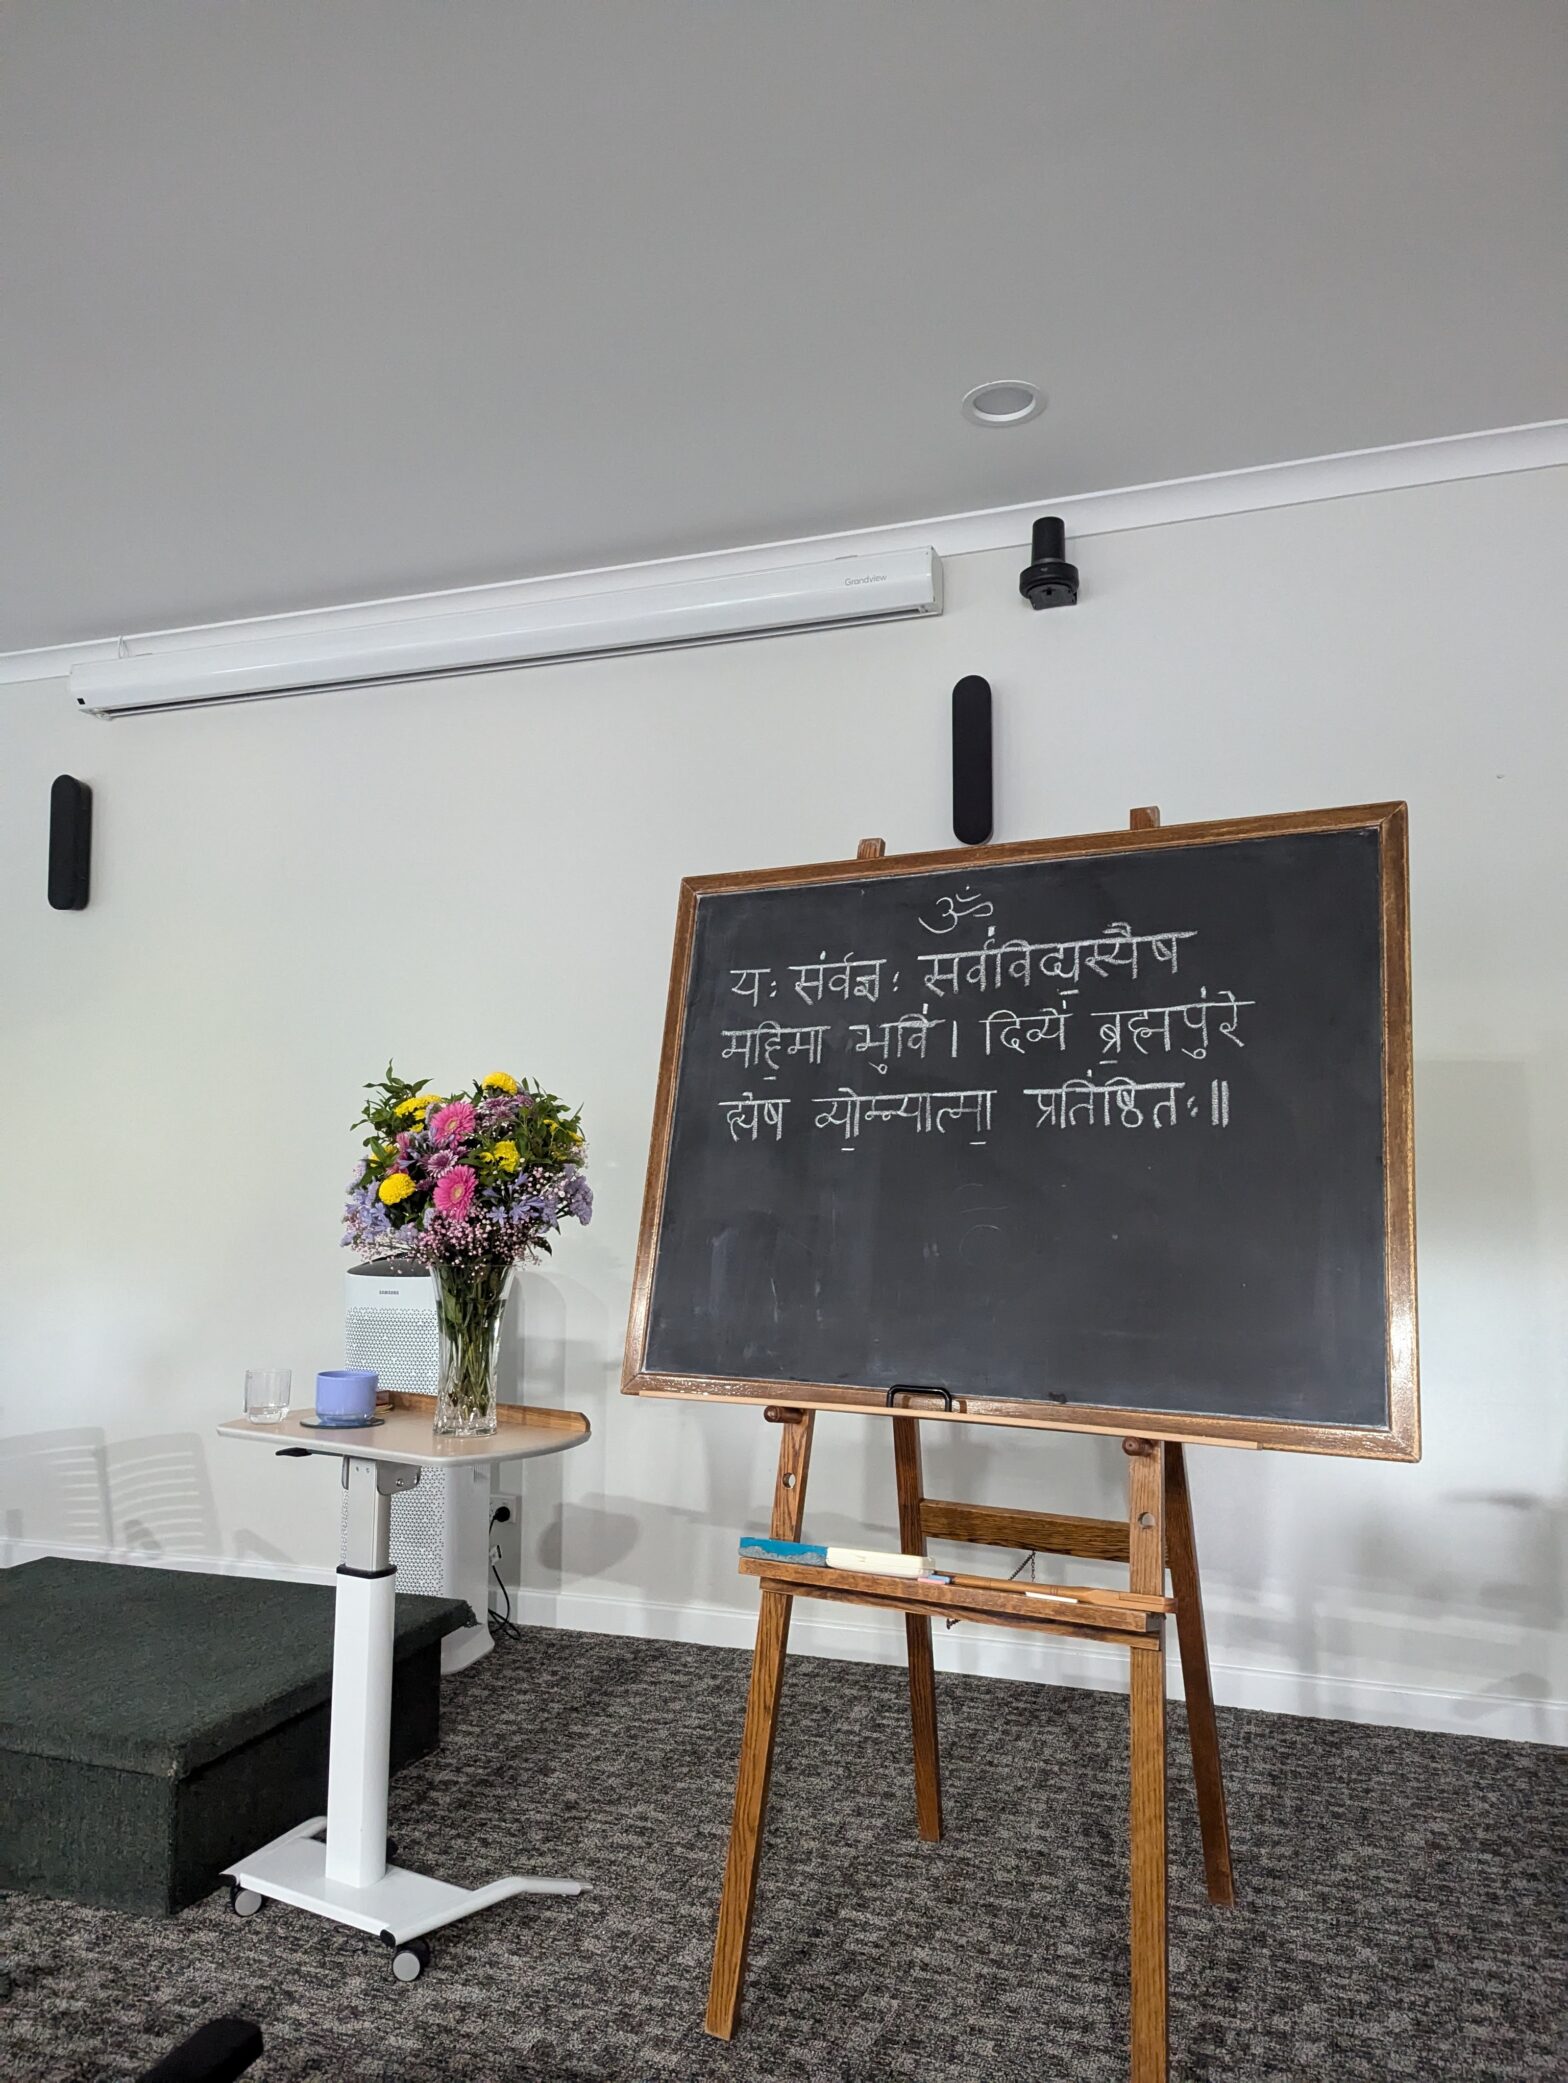 Grandview
ॐ
यः सर्व॑ज्ञः सर्व॑विद्य॒स्यैष
महि॒मा भुवि॑। दिव्ये॑ ब्र॒ह्मपु॑रे
ह्येष व्यो॒म्न्यात्मा॒ प्रति॑ष्ठितः॥
SAMSUNG